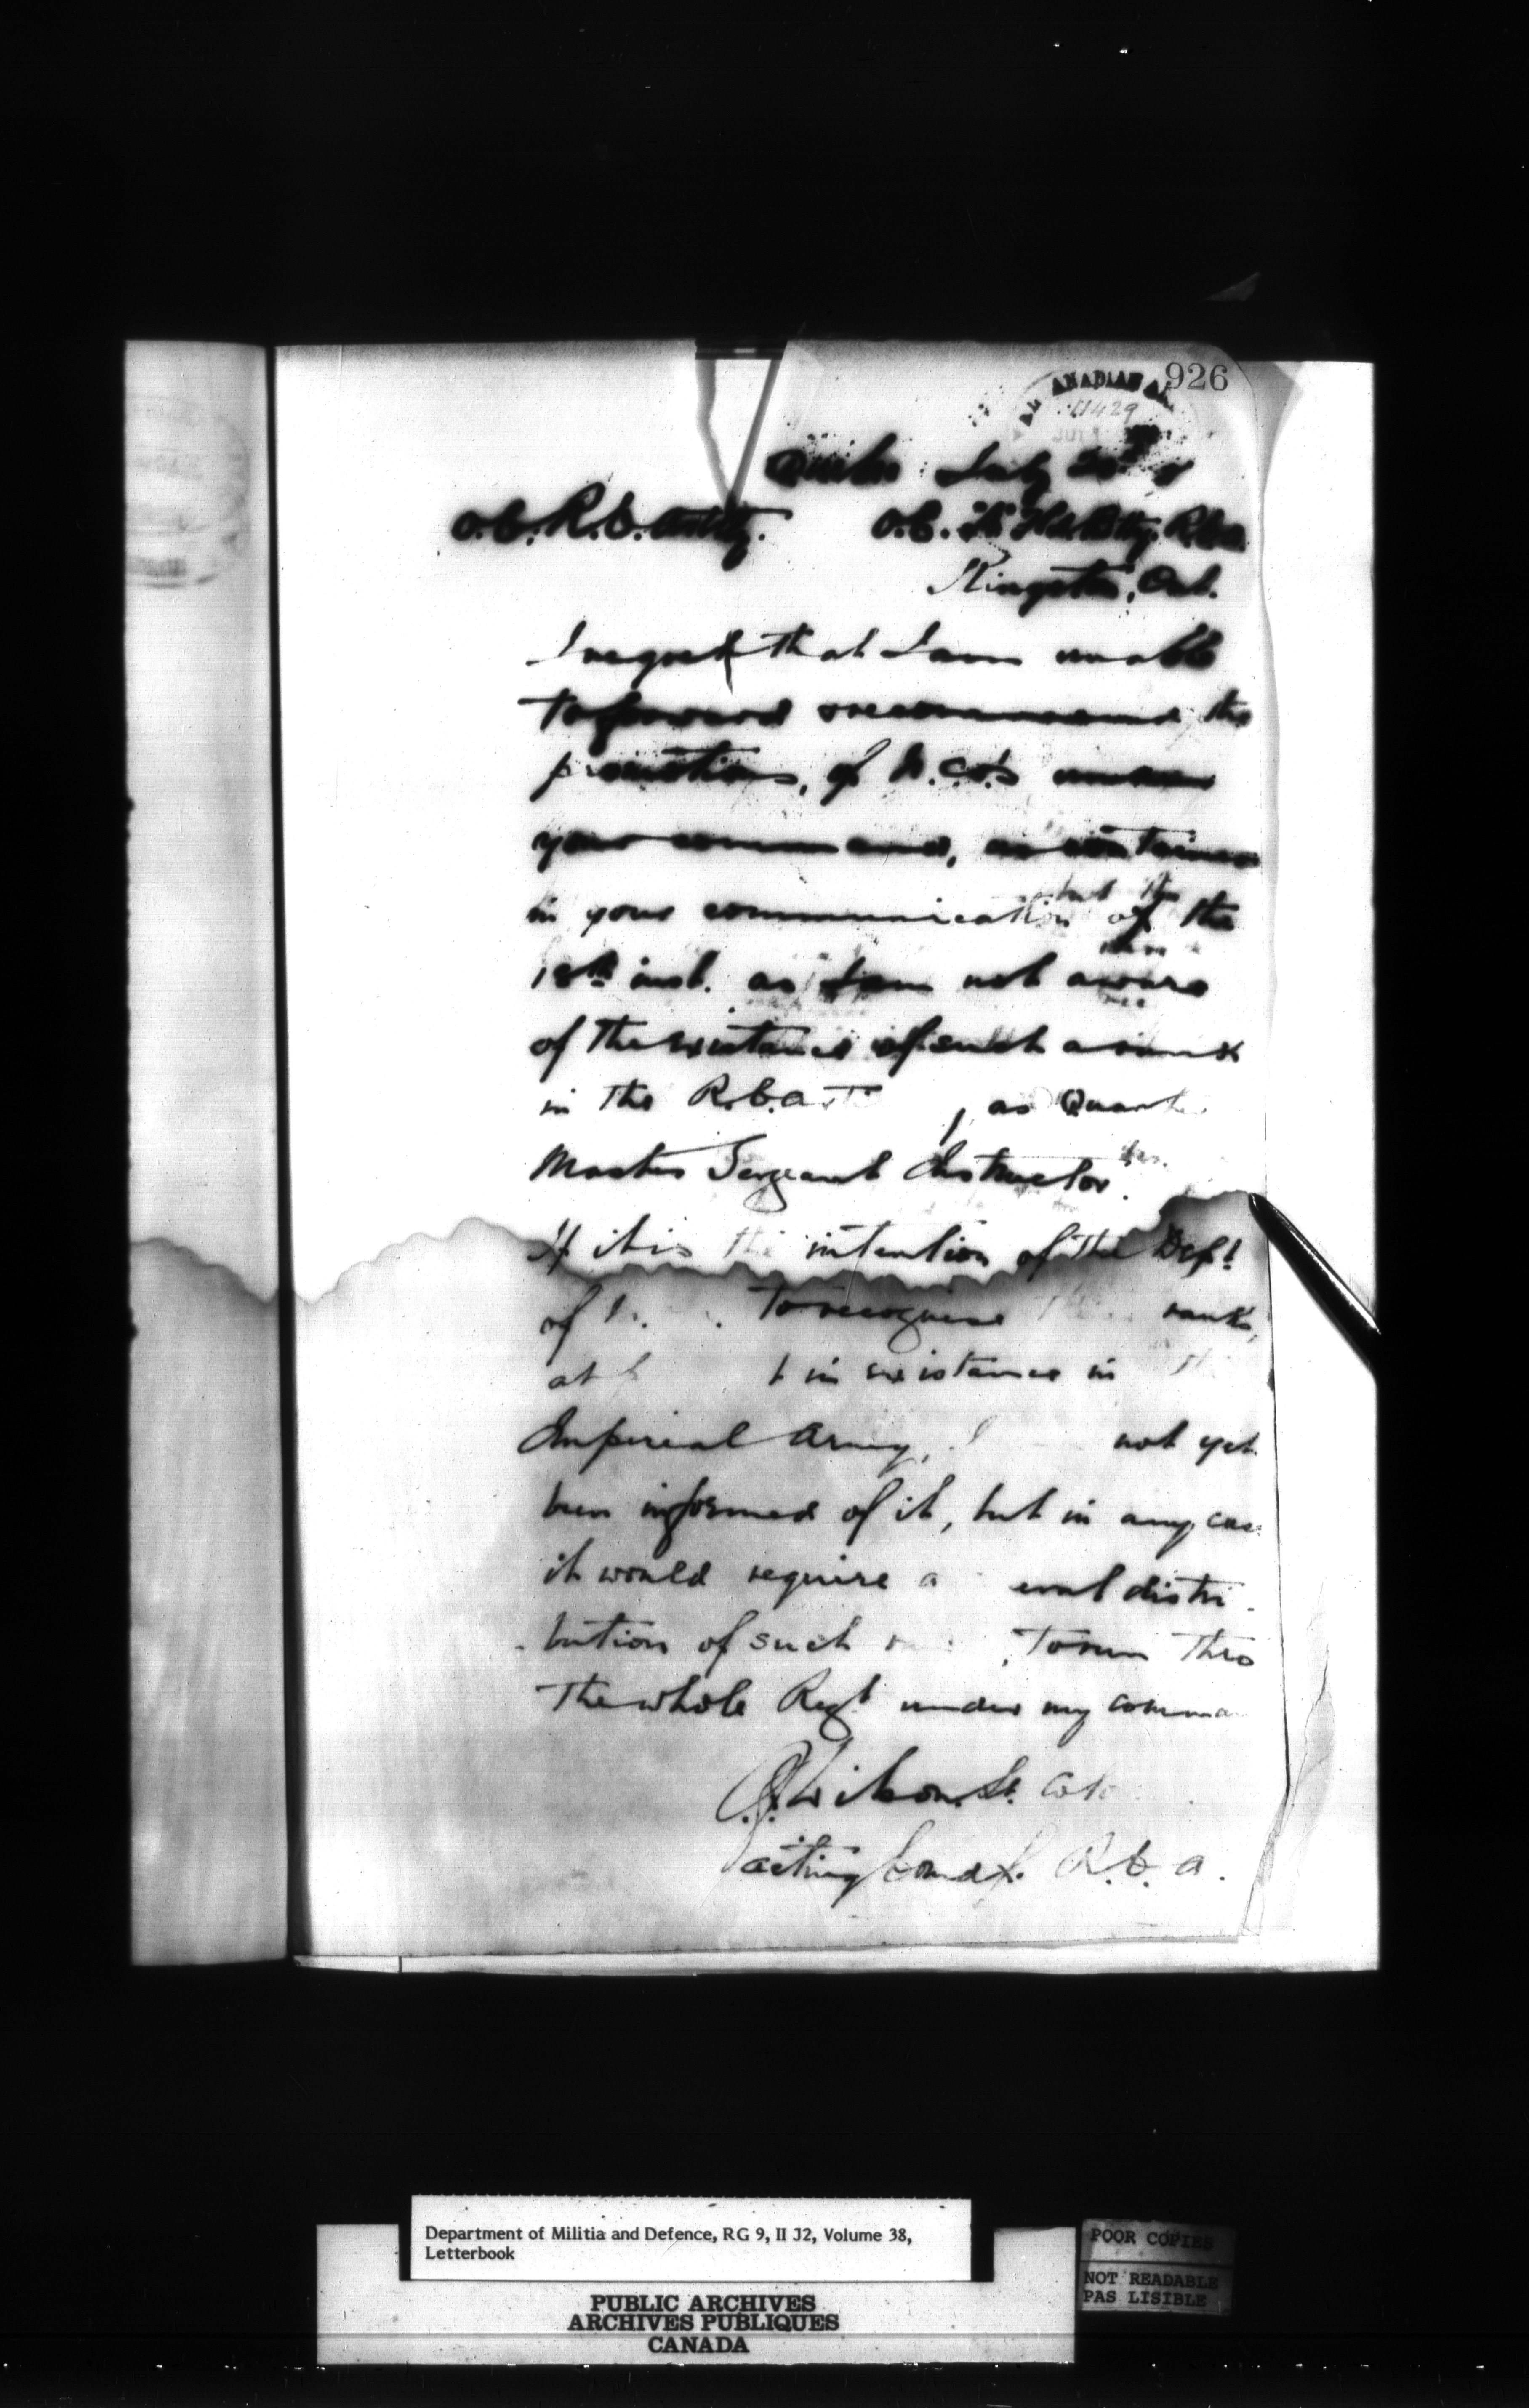 926
ANADIAN
11429
Quebec July 20th
O.C. R.C. Artilly. O.C. "A" Fd. Batty. R.C.A.
Kingston, Ont.
I regret that I am unable
to forward recommend the
promotions, of N.C.O's under
your command, as contained
in your communication of the
18th inst. as I am not aware
of the existance of such a rank
in the R.C.A. , as Quarter
Master Sergeant Instructor.
If it is the intention of the Dept
of to recognise ranks,
at in existance in
Imperial Army, I not yet
been informed of it, but in any case
it would require a eral distri-
bution of such to run thro
the whole Regt under my comma
Wilson. Lt. Col.
acting Comdt. R.C.A.
Department of Militia and Defence, RG 9, II J2, Volume 38,
Letterbook
PUBLIC ARCHIVES
ARCHIVES PUBLIQUES
CANADA
POOR COPIES
NOT READABLE
PAS LISIBLE